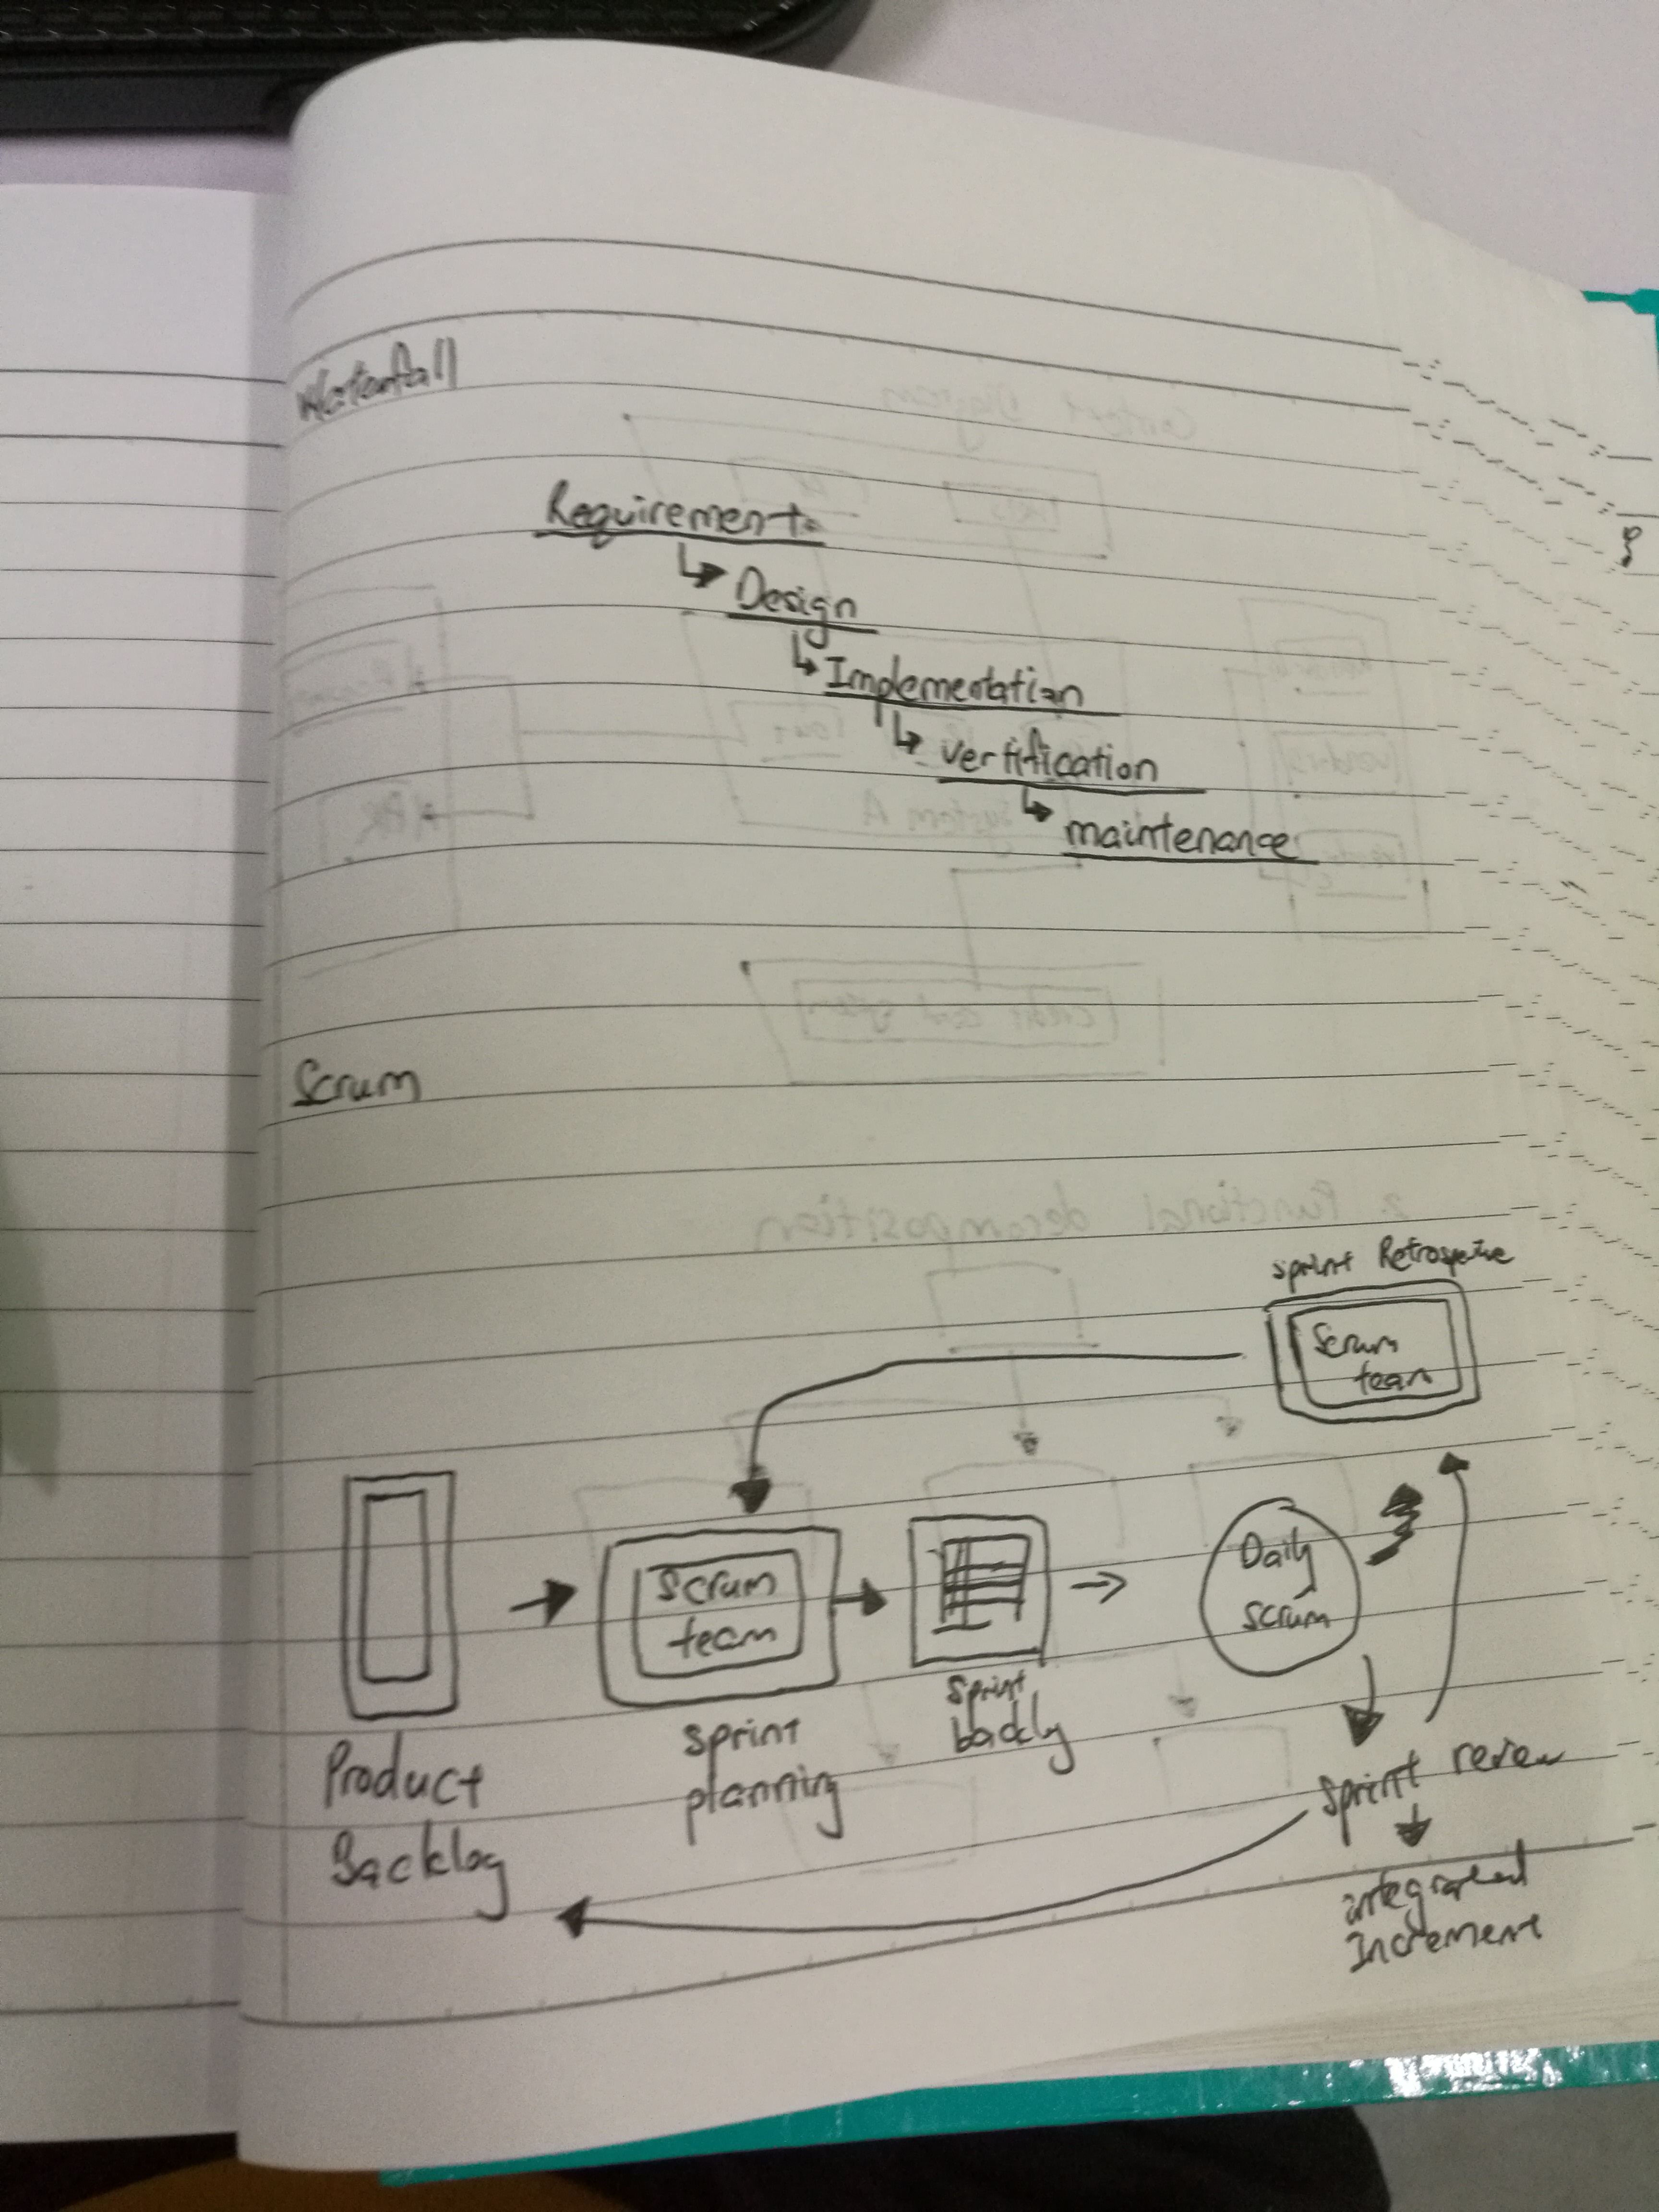 Waterfall
Requirements
Design
Implementation
vertification
maintenance
Scrum
sprint Retrospective
Scrum
team
Daily
scrum
Scrum
team
sprint
backlg
sprint
planning
Product
Backlog
sprint review
integrated
Increment